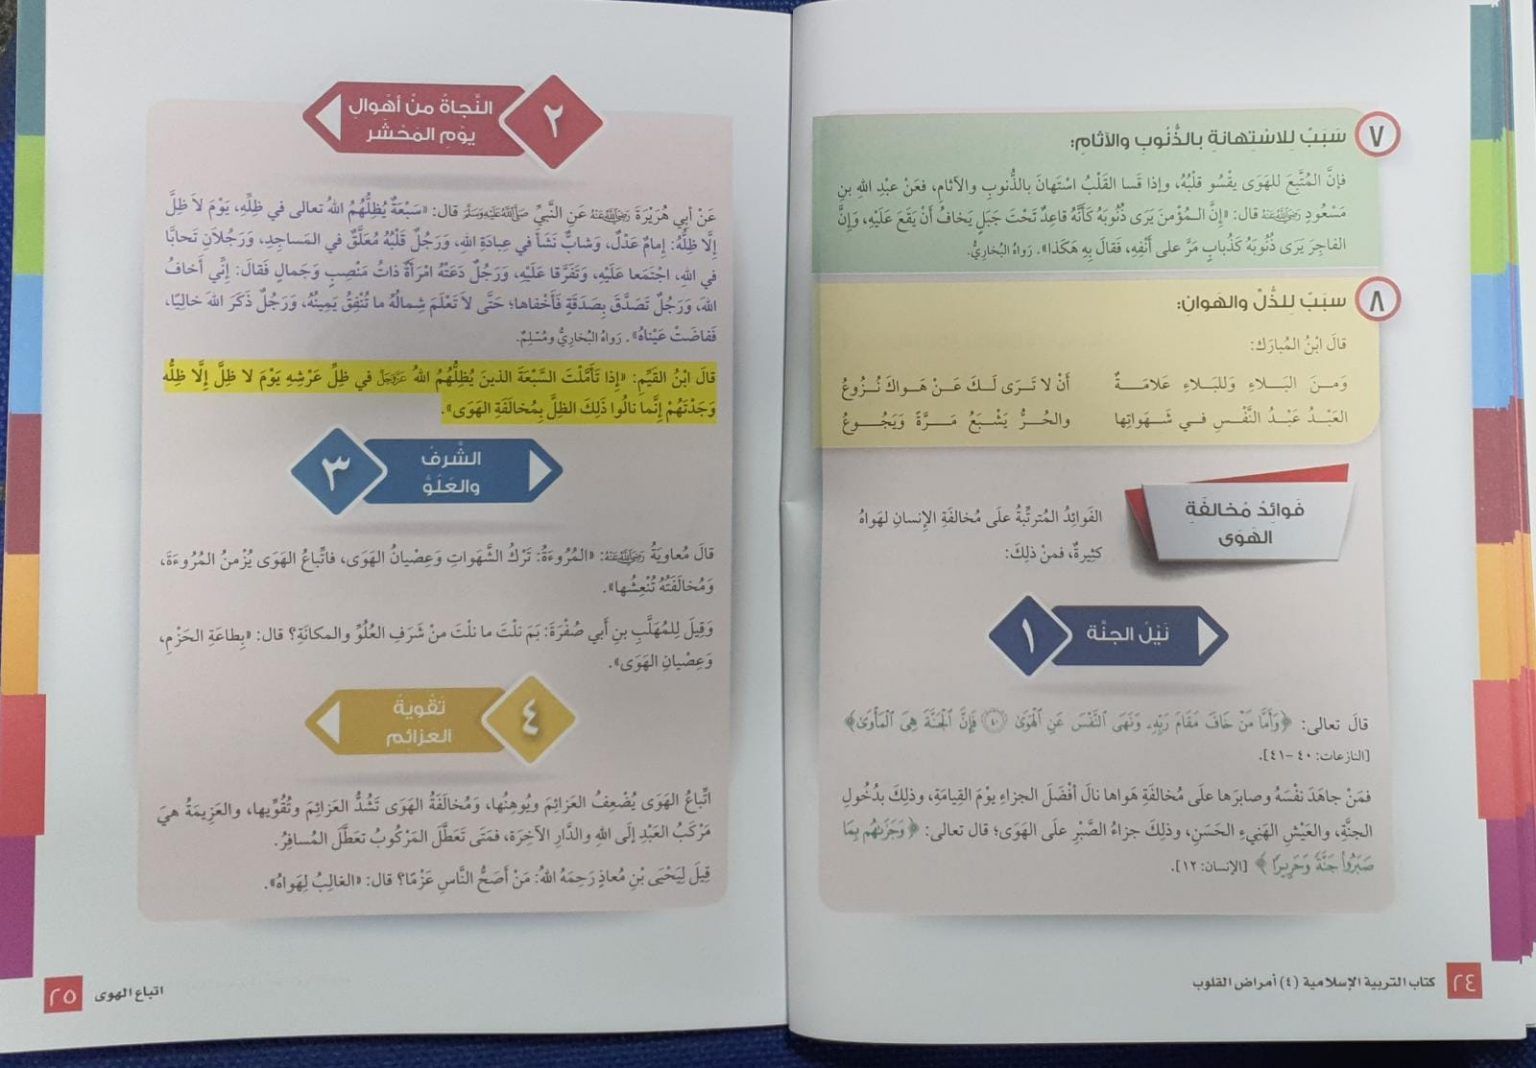 ٧
سَبَبٌ لِلاسْتِهانَةِ بالذُّنُوبِ والآثامِ:
فإنَّ المُتَّبِعَ للهَوَى يقْسُو قلْبُهُ، وإذا قَسا القَلْبُ اسْتَهانَ بالذُّنوبِ والآثامِ، فعَنْ عبْدِ اللهِ بنِ
مَسْعُودٍ رَضِيَ اللهُ عَنْهُ قال: «إنَّ المُؤْمنَ يَرَى ذُنُوبَهُ كَأَنَّهُ قاعِدٌ تَحْتَ جَبَلٍ يَخافُ أَنْ يَقَعَ عَلَيْهِ، وَإِنَّ
الفاجِرَ يَرَى ذُنُوبَهُ كَذُبابٍ مَرَّ على أَنْفِهِ، فَقالَ بِهِ هَكَذا». رَواهُ البُخاريُّ.
٨
سَبَبٌ للذُّلِّ والهَوانِ:
قالَ ابْنُ المُبارَك:
وَمنَ البَلاءِ وَللبَلاءِ عَلامَةٌ أَنْ لا تَرَى لَكَ عَنْ هَواكَ نُزُوعُ
العَبْدُ عَبْدُ النَّفْسِ في شَهَواتِها والحُرُّ يَشْبَعُ مَرَّةً وَيَجُوعُ
فَوائِدُ مُخالَفَةِ
الهَوَى
الفَوائِدُ المُترتِّبةُ علَى مُخالفَةِ الإنسانِ لهَواهُ
كثِيرةٌ، فمنْ ذلِكَ:
١
نَيْلُ الجنَّة
قالَ تعالى: ﴿وَأَمَّا مَنْ خَافَ مَقَامَ رَبِّهِۦ وَنَهَى ٱلنَّفْسَ عَنِ ٱلْهَوَىٰ ٤٠ فَإِنَّ ٱلْجَنَّةَ هِىَ ٱلْمَأْوَىٰ﴾
[النازعات: ٤٠-٤١].
فمَنْ جاهَدَ نفْسَهُ وصابرَها علَى مُخالفَةِ هَواها نالَ أفْضَلَ الجزاءِ يوْمَ القِيامَةِ، وذلِكَ بدُخُولِ
الجنَّةِ، والعَيْشِ الهَنِيءِ الحَسَنِ، وذلِكَ جزاءُ الصَّبْرِ علَى الهَوَى؛ قال تعالى: ﴿وَجَزَىٰهُم بِمَا
صَبَرُوا۟ جَنَّةً وَحَرِيرًا﴾ [الإنسان: ١٢].
٢٤
كتاب التربية الإسلامية (٤) أمراض القلوب
٢
النَّجاةُ منْ أهْوالِ
يوْمِ المَحْشَر
عَنْ أبي هُرَيْرَةَ رَضِيَ اللهُ عَنْهُ عَنِ النَّبيِّ صَلَّى اللهُ عَلَيْهِ وَسَلَّمَ قال: «سَبْعَةٌ يُظِلُّهُمُ اللهُ تعالى في ظِلِّهِ، يَوْمَ لاَ ظِلَّ
إِلا ظِلُّهُ: إمامٌ عَدْلٌ، وَشابٌّ نَشَأَ في عِبادَةِ اللهِ، وَرَجُلٌ قَلْبُهُ مُعَلَّقٌ في المَساجِدِ، وَرَجُلاَنِ تَحابَّا
في اللهِ، اجْتَمَعا عَلَيْهِ، وَتَفَرَّقا عَلَيْهِ، وَرَجُلٌ دَعَتْهُ امْرَأَةٌ ذاتُ مَنْصِبٍ وَجَمالٍ فَقالَ: إِنِّي أَخافُ
اللهَ، وَرَجُلٌ تَصَدَّقَ بِصَدَقَةٍ فَأَخْفاها؛ حَتَّى لاَ تَعْلَمَ شِمالُهُ ما تُنْفِقُ يَمِينُهُ، وَرَجُلٌ ذَكَرَ اللهَ خالِيًا،
فَفاضَتْ عَيْناهُ». رَواهُ البُخاريُّ ومُسْلِمٌ.
قالَ ابْنُ القَيِّمِ: «إذا تَأَمَّلْتَ السَّبْعَةَ الذينَ يُظِلُّهُمُ اللهُ عَزَّ وَجَلَّ في ظِلِّ عَرْشِهِ يَوْمَ لا ظِلَّ إلَّا ظِلُّه
وَجَدْتَهُمْ إِنَّما نالُوا ذَلِكَ الظِلَّ بِمُخالَفَةِ الهَوَى».
٣
الشَّرفُ
والعُلُوُّ
قالَ مُعاوِيَةُ رَضِيَ اللهُ عَنْهُ: «المُرُوءَةُ: تَرْكُ الشَّهَواتِ وَعِصْيانُ الهَوَى، فاتِّباعُ الهَوَى يُزْمنُ المُرُوءَةَ،
وَمُخالَفَتُهُ تُنْعِشُها».
وَقِيلَ لِلمُهَلَّبِ بنِ أَبي صُفْرَةَ: بَمَ نلْتَ ما نلْتَ منْ شَرَفِ العُلُوِّ والمكانَةِ؟ قال: «بِطاعَةِ الحَزْمِ،
وَعِصْيانِ الهَوَى».
٤
تَقْويةُ
العزائِم
اتِّباعُ الهَوَى يُضْعِفُ العَزائِمَ ويُوهِنُها، وَمُخالَفَةُ الهَوَى تَشُدُّ العَزائِمَ وتُقُوِّيها، والعَزِيمَةُ هيَ
مَرْكَبُ العَبْدِ إلَى اللهِ والدَّارِ الآخِرَة، فمَتَى تَعَطَّلَ المَرْكُوبُ تعَطَّلَ المُسافِرُ.
قِيلَ لِيَحْيَى بْنِ مُعاذٍ رَحِمَهُ اللهُ: مَنْ أَصَحُّ النَّاسِ عَزْمًا؟ قال: «الغالِبُ لِهَواهُ».
اتباع الهوى
٢٥